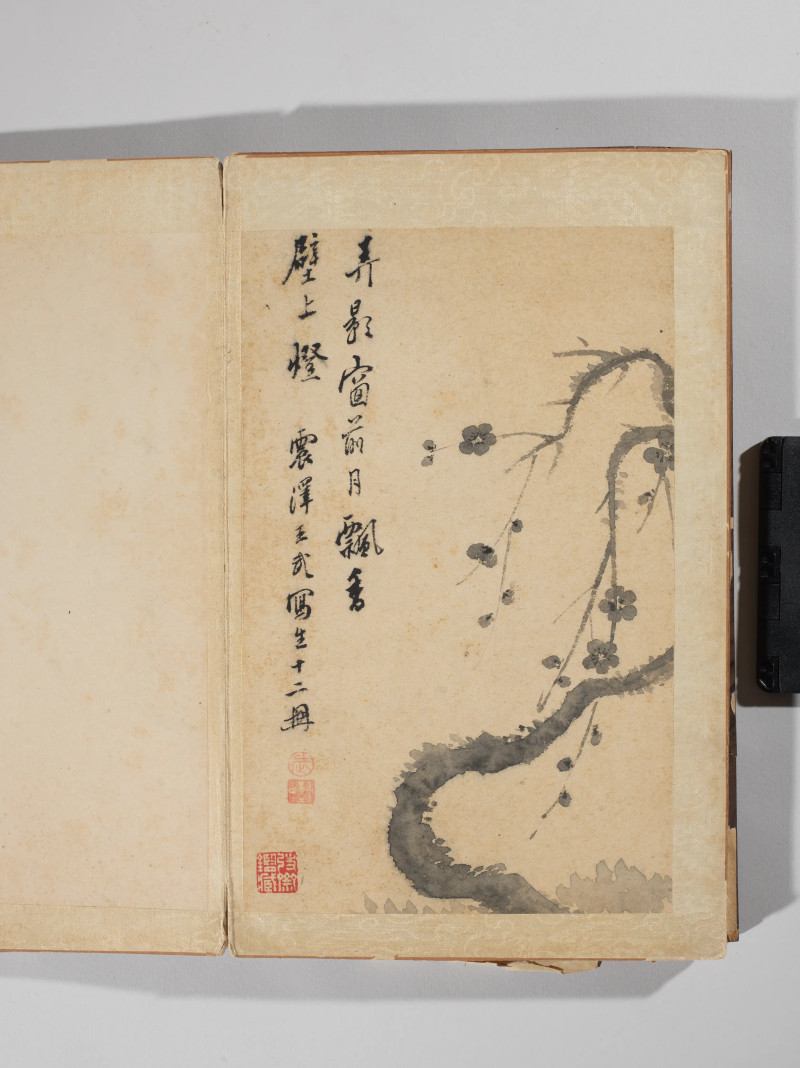 弄影窗前月飄香
壁上燈 震澤王武寫生十二冊